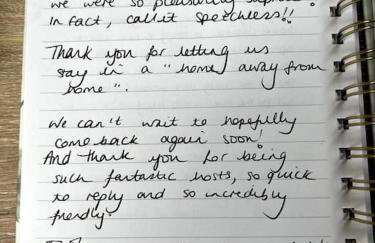 we were so pleasantly
In fact, call it speechless!!
Thank you for letting us
stay in a "home away from
home".
We can't wait to hopefully
come back again soon!
And thank you for being
such fantastic hosts, so quick
to reply and so incredibly
friendly.